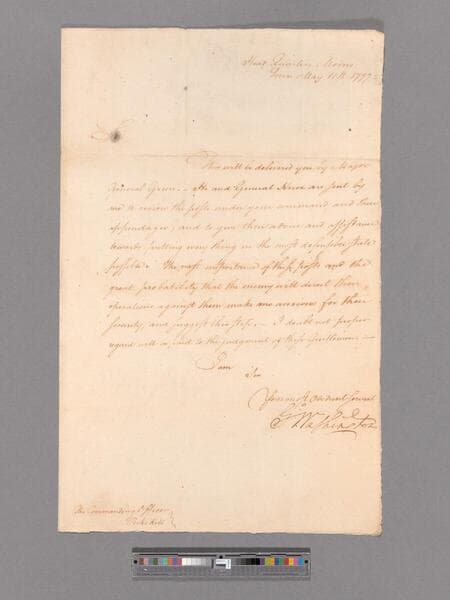 Head Quarters Morris
Town May 11th 1777
Sir
This will be delivered you by Major
General Green. – He and General Knox are sent by
me to review the posts under your command and their
appendages, and to give their advice and assistance
towards putting every thing in the most defensible state
possible. The vast importance of these posts and the
great probability that the enemy will direct their
operations against them make me anxious for their
security, and suggest this step. – I doubt not proper
regard will be paid to the judgment of these Gentlemen. –
I am
Sir
Your most Obedient Servant
Go Washington
The Commanding Officer
Peeks Kill